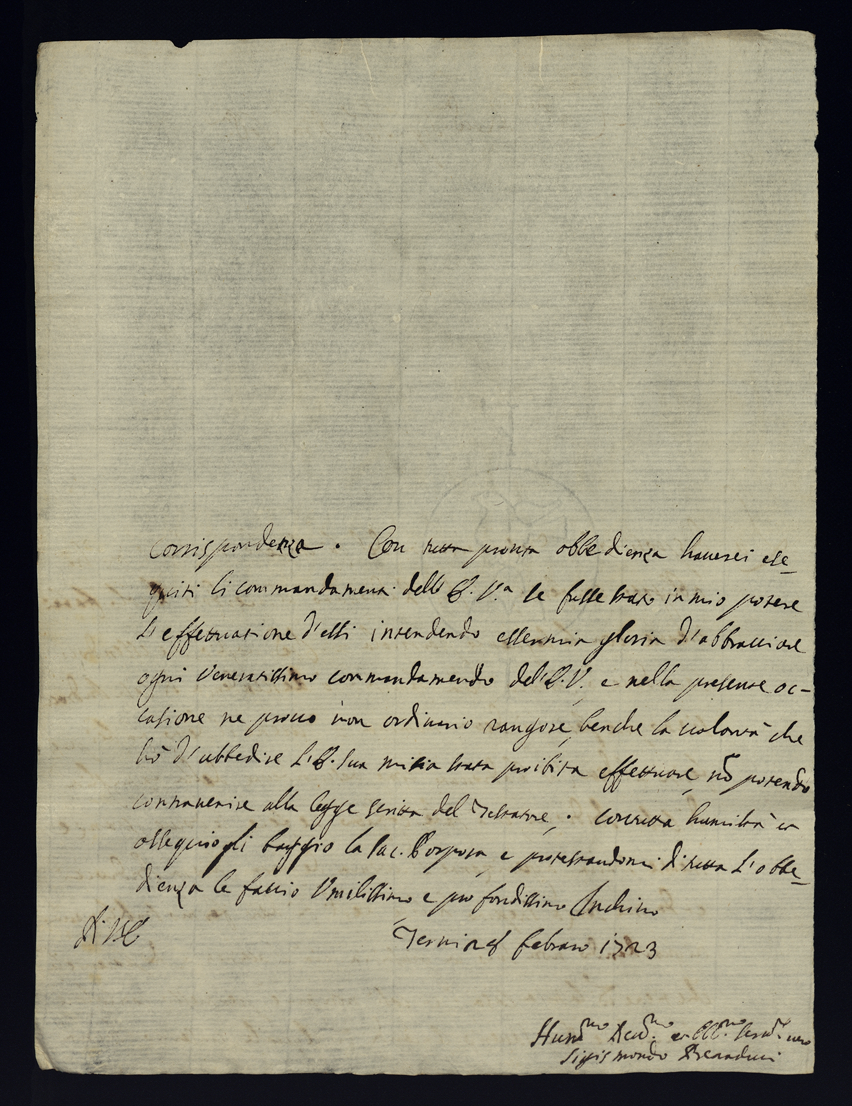 Corrispondenza. Con tutta pronta obbedienza haverei ese=
guiti li commandamenti dell' E. V.ª se fusse stato in mio potere
l'effettuazione d'essi intendendo esser mia gloria d'abbracciare
ogni veneratissimo commandamento del' E. V. e nella presente oc=
casione ne provo non ordinario rangore, benche la volontà che
hò d'ubbedire L'E. Sua mi sia stata proibita effettuare, nō potendo
contravenire alla legge scritta del Testatore. con tutta humiltà et
ossequio gli baggio la Sac. Porpora, e protestandomi di tutta l'obbe=
dienza le faccio Umilissimo e profondissimo Inchino
Terni febraro 1723
Hum.mo Dev.mo et Obb.mo Serv.re vero
Sigismondo